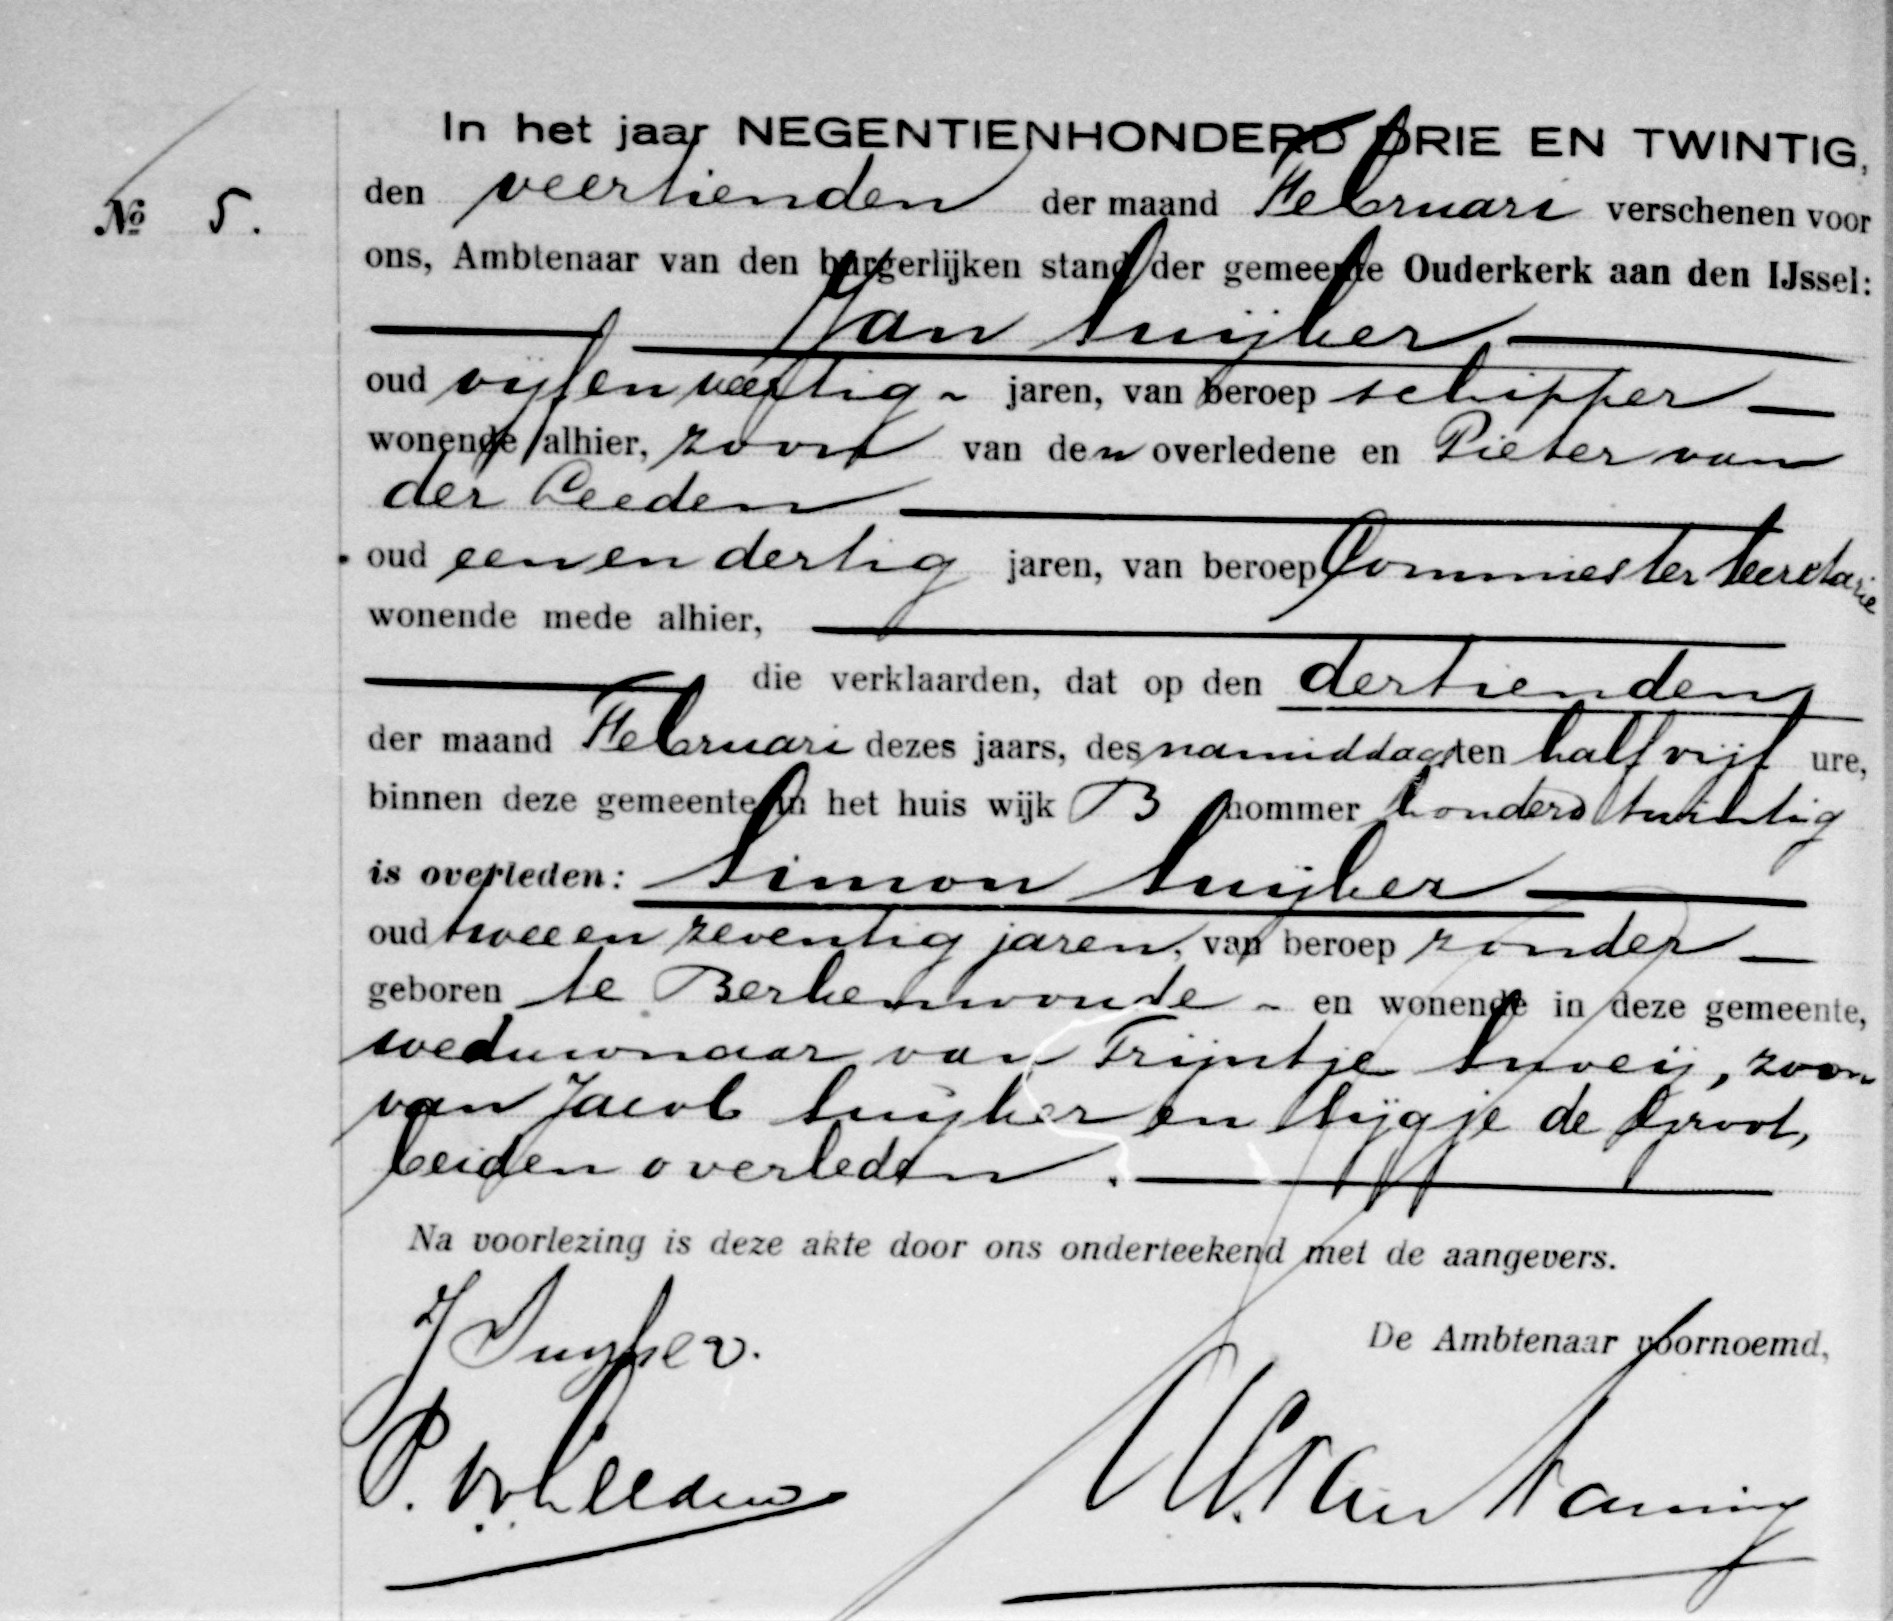 In het jaar NEGENTIENHONDERD DRIE EN TWINTIG,
No 5.
den veertienden der maand Februari verschenen voor
ons, Ambtenaar van den burgerlijken stand der gemeente Ouderkerk aan den IJssel:
Jan Suijker
oud vijf en veertig jaren, van beroep schipper
wonende alhier, zoon van den overledene en Pieter van
der Leeden
oud een en dertig jaren, van beroep Commies ter Secretarie
wonende mede alhier,
die verklaarden, dat op den dertienden
der maand Februari dezes jaars, des namiddags ten half vijf ure,
binnen deze gemeente in het huis wijk B nommer honderd twintig
is overleden: Simon Suijker
oud twee en zeventig jaren, van beroep zonder
geboren te Berkenwoude en wonende in deze gemeente,
weduwnaar van Trijntje Snoeij, zoon
van Jacob Suijker en Sijgje de Groot,
beiden overleden.
Na voorlezing is deze akte door ons onderteekend met de aangevers.
J Suyker.
De Ambtenaar voornoemd,
P. v.d. Leeden